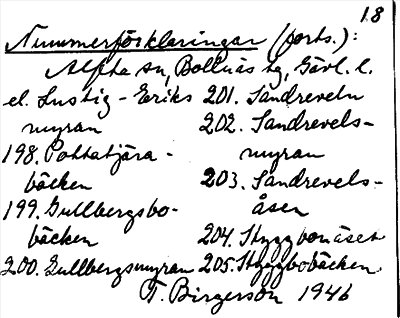 18
Nummerförklaringar (forts.):
Alfta sn, Bollnäs tg, Gävl. l.
el. Lustig-Eriks
myran
198. Pottatjära-
bäcken
199. Gullbergsbo-
bäcken
200. Gullbergsmyran
201. Sandreveln
202. Sandrevels-
myran
203. Sandrevels-
åsen
204. Styggbonäset
205. Styggbobäcken
T. Birgerson 1946